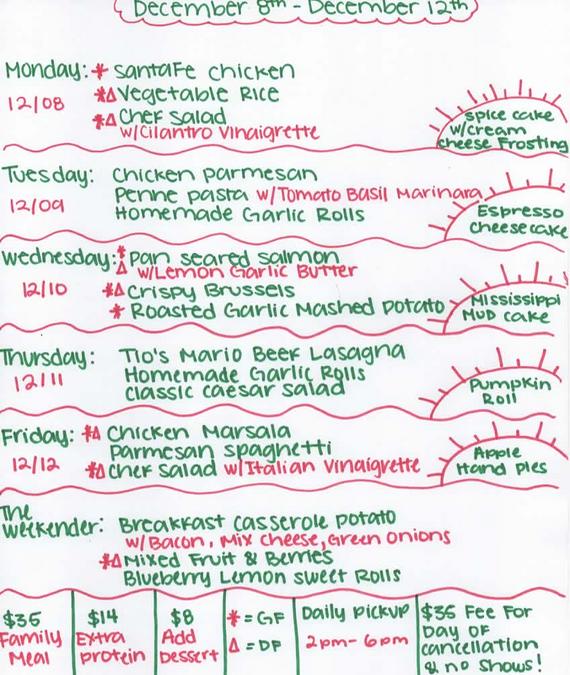 December 8th - December 12th
Monday: * SantaFe Chicken
12/08 *Δ Vegetable Rice
*Δ Chef Salad
w/Cilantro Vinaigrette
Spice cake
w/cream
cheese Frosting
Tuesday: Chicken Parmesan
12/09 Penne Pasta w/Tomato Basil Marinara
Homemade Garlic Rolls
Espresso
Cheesecake
Wednesday: *Δ Pan seared salmon
w/Lemon Garlic Butter
12/10 *Δ Crispy Brussels
* Roasted Garlic Mashed Potato
Mississippi
Mud cake
Thursday: Tio's Mario Beef Lasagna
12/11 Homemade Garlic Rolls
Classic Caesar Salad
Pumpkin
Roll
Friday: *Δ Chicken Marsala
Parmesan Spaghetti
12/12 *Δ Chef Salad w/Italian Vinaigrette
Apple
Hand Pies
The
Weekender: Breakfast Casserole Potato
w/Bacon, Mix Cheese, Green Onions
*Δ Mixed Fruit & Berries
Blueberry Lemon Sweet Rolls
$36
Family
Meal
$14
Extra
Protein
$8
Add
Dessert
* = GF
Δ = DF
Daily Pickup
2pm-6pm
$35 Fee For
Day of
cancellation
& no shows!